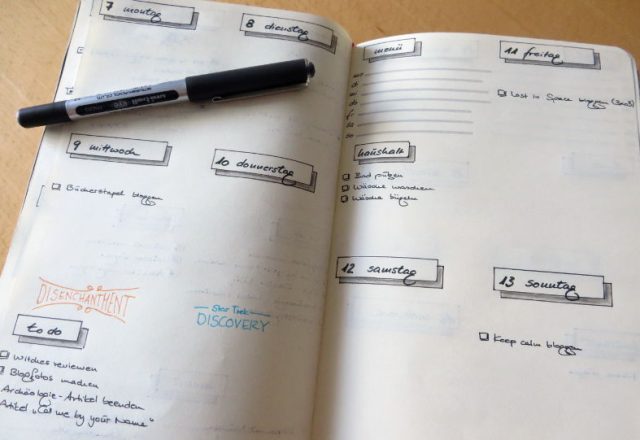 7 montag
8 dienstag
9 mittwoch
☐ Bücherstapel bloggen
10 donnerstag
DISENCHANTMENT
Star Trek
DISCOVERY
to do
☐ Witches reviewen
☐ Blogfotos machen
Archäologie-Artikel beenden
Artikel "Call me by your Name"
menü
mo
di
mi
do
fr
sa
so
haushalt
☐ Bad putzen
☐ Wäsche waschen
☐ Wäsche bügeln
11 freitag
☐ Lost in Space bloggen
12 samstag
13 sonntag
☐ Keep calm bloggen